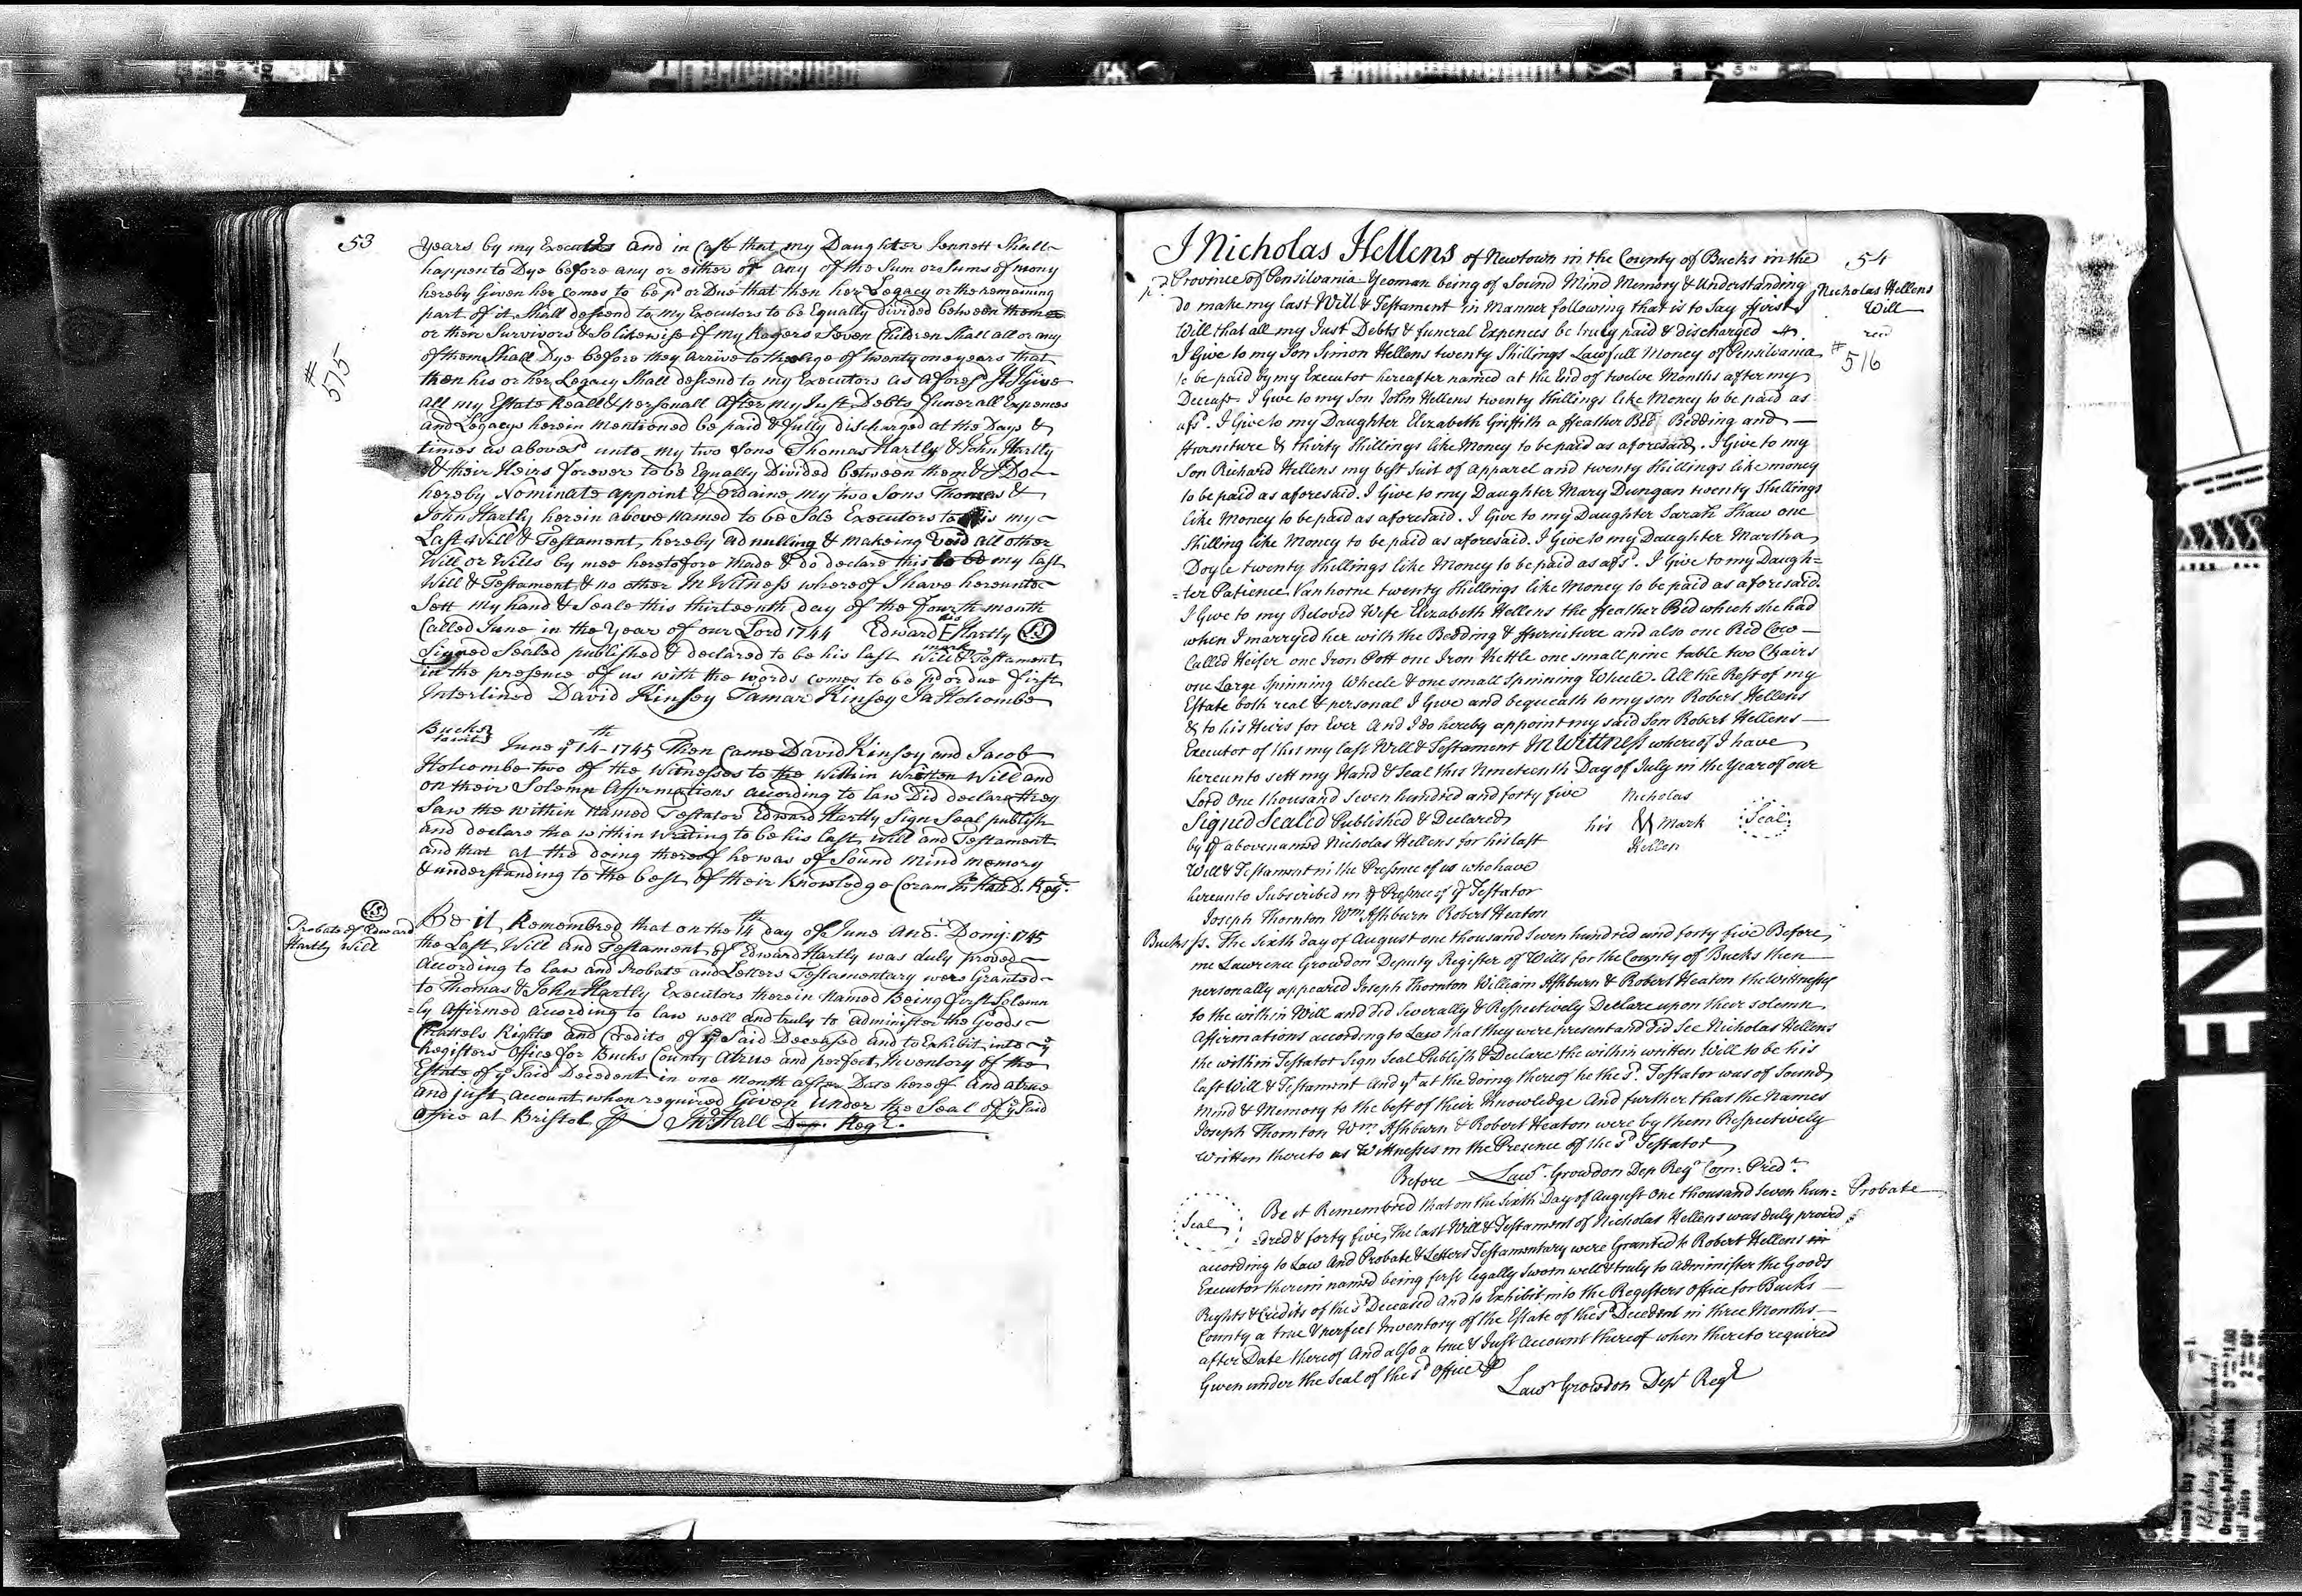 53
years by my Executrs and in Case that my Daughter Jennett Shall
happen to Dye before any or either of any of the Sum or Sums of mony
hereby Given her comes to be pd or Due that then her Legacy or the remaining
part of it Shall descend to my Executors to be Equally divided between them
or then Survivors & So likewise if my Rogers Seven Children Shall all or any
of them Shall Dye before they arrive to the age of twenty one years that
#
515
then his or her Legacy Shall descend to my Executors as aforesd. I Give
all my Estate Reall & personall After my Just Debts funerall Expences
and Legacys herein mentioned be paid & fully discharged at the Days &
times as abovesd unto my two Sons Thomas Hartly & John Hartly
& their Heirs forever to be Equally Divided between them & I Do
hereby Nominate appoint & ordaine my two Sons Thomas &
John Hartly herein above named to be Sole Executors to this my
Last Will & Testament, hereby adnulling & makeing Void all other
Will or Wills by mee heretofore made & do declare this to be my last
Will & Testament & no other In Witness whereof I have hereunto
Sett my hand & Seale this thirteenth day of the fourth month
Called June in the Year of our Lord 1744 Edward his E mark Hartly LS
Signed Sealed published & declared to be his last Will & Testament
in the presence of us with the words comes to be pd or due first
Interlined David Kinsey Tamar Kinsey Ja Holcombe
Bucks
June ye 14th 1745 Then Came David Kinsey and Jacob
Holcombe two of the Witnesses to the within written Will and
on their Solemn Affirmations according to law Did declare they
Saw the within named Testator Edward Hartly Sign Seal publish
and declare the within writing to be his last will and Testament
and that at the doing thereof he was of Sound mind memory
& understanding to the best of their knowledge Coram Jn Hall D. Regr.
LS
Probate of Edward
Hartly Will
Be it Remembred that on the 14th day of June Ano: Domj: 1745
the Last Will and Testament of Edward Hartly was duly proved
According to law and Probate and Letters Testamentary were Granted
to Thomas & John Hartly Executors therein named Being first Solemn
=ly Affirmed according to law well and truly to administer the Goods
Chattels Rights and Credits of ye Said Deceased and to Exhibit into ye
Registers office for Bucks County a true and perfect Inventory of the
Estate of ye Said Decedent in one month after Date hereof And a true
and just account when required Given Under the Seal of ye Said
office at Bristol Jn Hall Dep: Regr.
I Nicholas Hellens of Newtown in the County of Bucks in the
54
Province of Pensilvania Yeoman being of Sound Mind Memory & Understanding
Nicholas Hellens
Will
Do make my last Will & Testament in Manner following that is to Say ffirst I
Will that all my Just Debts & funeral Expences be truly paid & Discharged
#
516
I Give to my Son Simon Hellens twenty Shillings Lawfull Money of Pensilvania
to be paid by my Executor hereafter named at the End of twelve Months after my
Decease I Give to my Son John Hellens twenty Shillings like Money to be paid as
afsd. I Give to my Daughter Elizabeth Griffith a ffeather Bed Bedding and
ffurniture & thirty Shillings like Money to be paid as aforesaid. I Give to my
Son Richard Hellens my best Suit of apparel and twenty Shillings like money
to be paid as aforesaid. I Give to my Daughter Mary Dungan twenty Shillings
like Money to be paid as aforesaid. I Give to my Daughter Sarah Shaw one
Shilling like Money to be paid as aforesaid. I Give to my Daughter Martha
Doyle twenty Shillings like Money to be paid as afsd. I Give to my Daugh=
=ter Patience Vanhorne twenty Shillings like Money to be paid as aforesaid.
I Give to my Beloved Wife Elizabeth Hellens the ffeather Bed which she had
when I marryed her with the Bedding & ffurniture and also one Red Cow
Called Heifer one Iron Pott one Iron Kettle one small pine table two Chairs
one Large Spinning Wheele & one small Spinning Wheele. All the Rest of my
Estate both real & personal I Give and bequeath to my son Robert Hellens
& to his Heirs for Ever And I do hereby appoint my said Son Robert Hellens
Executor of this my last Will & Testament In Wittness whereof I have
hereunto sett my Hand & Seal this Nineteenth Day of July in the Year of our
Lord One thousand Seven hundred and forty five Nicholas
Signed Sealed Published & Declared his Mark Seal
by ye abovenamed Nicholas Hellens for his last Hellen
Will & Testament in the Presence of us who have
hereunto Subscribed in ye Presence of ye Testator
Joseph Thornton Wm Ashburn Robert Heaton
Bucks ss. The Sixth day of August one thousand Seven hundred and forty five Before
me Lawrence Growdon Deputy Register of Wills for the County of Bucks then
personally appeared Joseph Thornton William Ashburn & Robert Heaton the Wittnesses
to the within Will and did Severally & Respectively Declare upon their solemn
Affirmations according to Law that they were present and Did See Nicholas Hellens
the within Testator Sign Seal Publish & Declare the within written Will to be his
last Will & Testament And yt at the doing thereof he the sd. Testator was of Sound
Mind & Memory to the best of their Knowledge And further that the Names
Joseph Thornton Wm Ashburn & Robert Heaton were by them Respectively
Written thereto as Wittnesses in the Presence of the sd Testator
Before Lawr. Growdon Dep Regr Com: Pred.
Probate
Seal
Be it Remembred that on the Sixth Day of August One thousand Seven hun=
=dred & forty five, The last Will & Testament of Nicholas Hellens was duly proved
according to Law And Probate & Letters Testamentary were Granted to Robert Hellens
Executor therein named being first legally Sworn well & truly to administer the Goods
Rights & Credits of the sd Deceased And to Exhibit into the Registers Office for Bucks
County a true & perfect Inventory of the Estate of the sd Decedent in three Months
after Date thereof And also a true & Just Account thereof when thereto required
Given under the Seal of the sd Office
Lawr Growdon Dept Regr
END